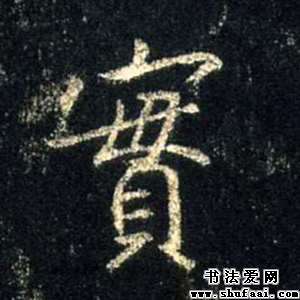 實
书法爱网
www.shufaai.com